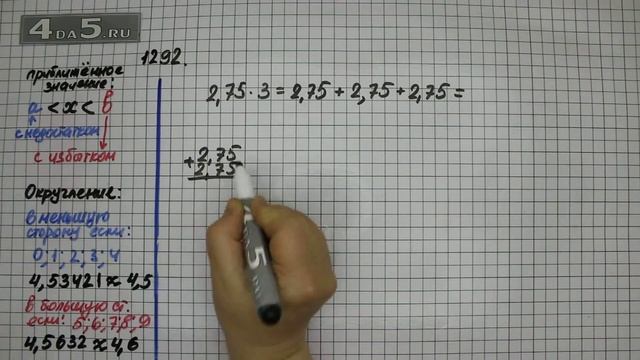 4DA5.RU
1292.
приближённое
значение:
a < x < b
с недостатком
с избытком
Округление:
в меньшую
сторону если:
0; 1; 2; 3; 4
4,53421 ≈ 4,5
в большую ст.
если: 5; 6; 7; 8; 9
4,5632 ≈ 4,6
2,75 · 3 = 2,75 + 2,75 + 2,75 =
+ 2,75
2,75
5